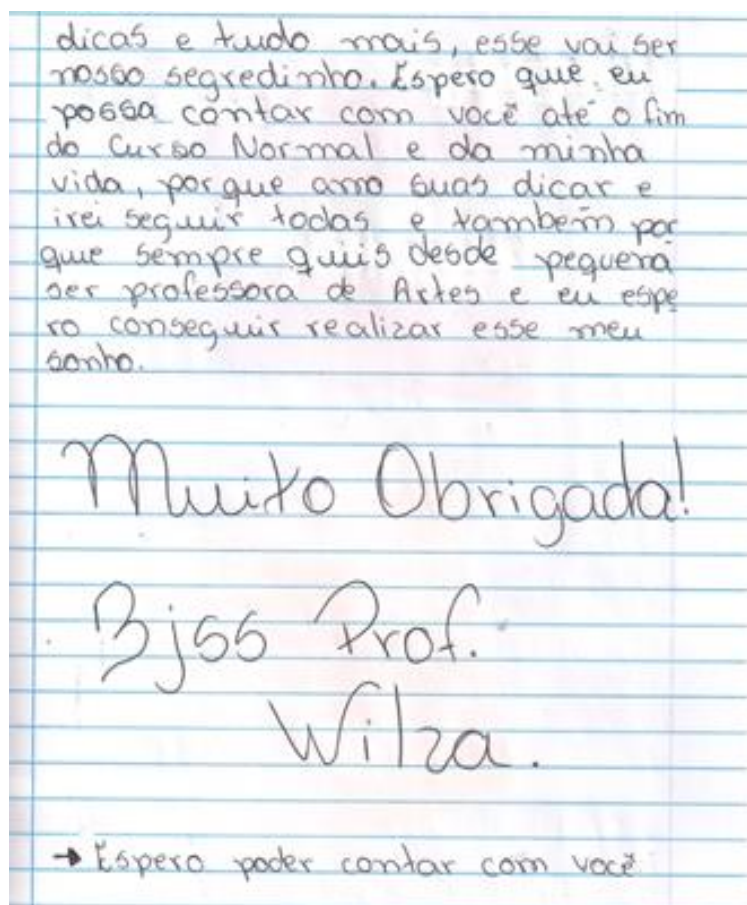 dicas e tudo mais, esse vai ser
nosso segredinho. Espero que eu
possa contar com você até o fim
do Curso Normal e da minha
vida, porque amo suas dicar e
irei seguir todas e também por
que sempre quis desde pequena
ser professora de Artes e eu espe
ro conseguir realizar esse meu
sonho.
Muito Obrigada!
Bjss Prof.
Wilza.
→ Espero poder contar com você